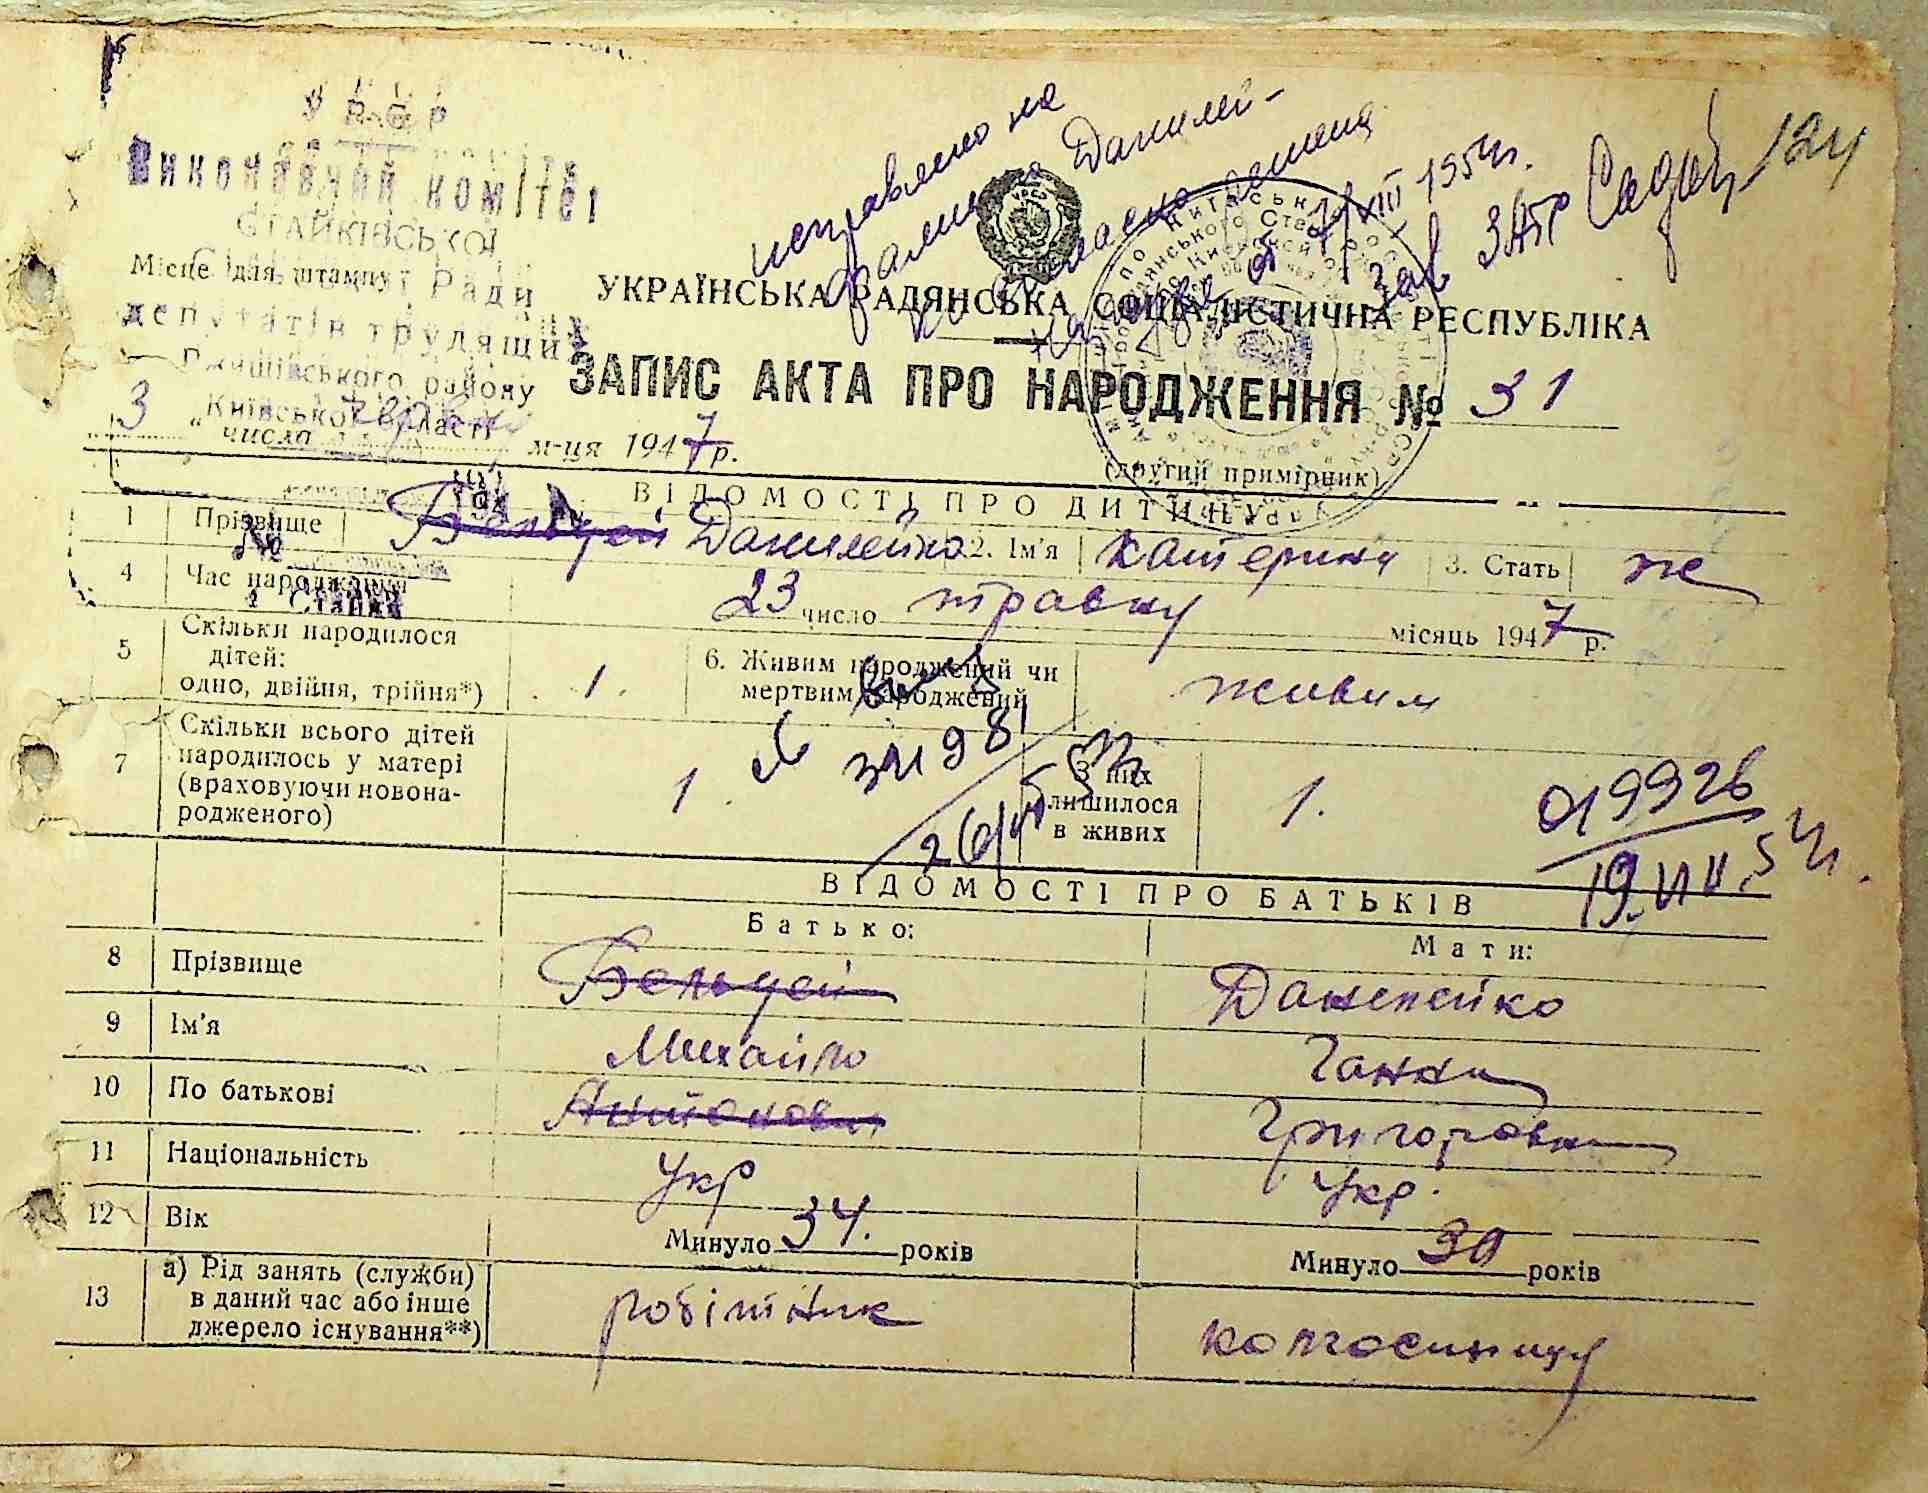 Виконавчий комітет
СТАЙКІВСЬКОЇ
Місце для штампу
Ради
депутатів трудящих
Ржищівського району
Київської області
исправлено на
фамилию Данилей-
ко согласно решения
от 7/VIII 1954г.
зав ЗАГР
124
УКРАЇНСЬКА РАДЯНСЬКА СОЦІАЛІСТИЧНА РЕСПУБЛІКА
ЗАПИС АКТА ПРО НАРОДЖЕННЯ № 31
3 " числа червня м-ця 1947 р.
(другий примірник)
ВІДОМОСТІ ПРО ДИТИНУ
1 Прізвище Данилейко 2. Ім'я Катерина 3. Стать же
4 Час народження 23 число травня місяць 1947 р.
с. Стайки
5 Скільки народилося
дітей:
одно, двійня, трійня*) 1. 6. Живим народжений чи
мертвим народжений живим
7 Скільки всього дітей
народилось у матері
(враховуючи новона-
родженого) 1. З них
лишилося
в живих 1.
019926
19.VIII.54г.
ВІДОМОСТІ ПРО БАТЬКІВ
Батько: Мати:
8 Прізвище Данилейко
9 Ім'я Михайло Ганна
10 По батькові Антонович Григоровна
11 Національність Укр Укр.
12 Вік Минуло 34. років Минуло 30 років
13 а) Рід занять (служби)
в даний час або інше
джерело існування**) робітник колгоспниця